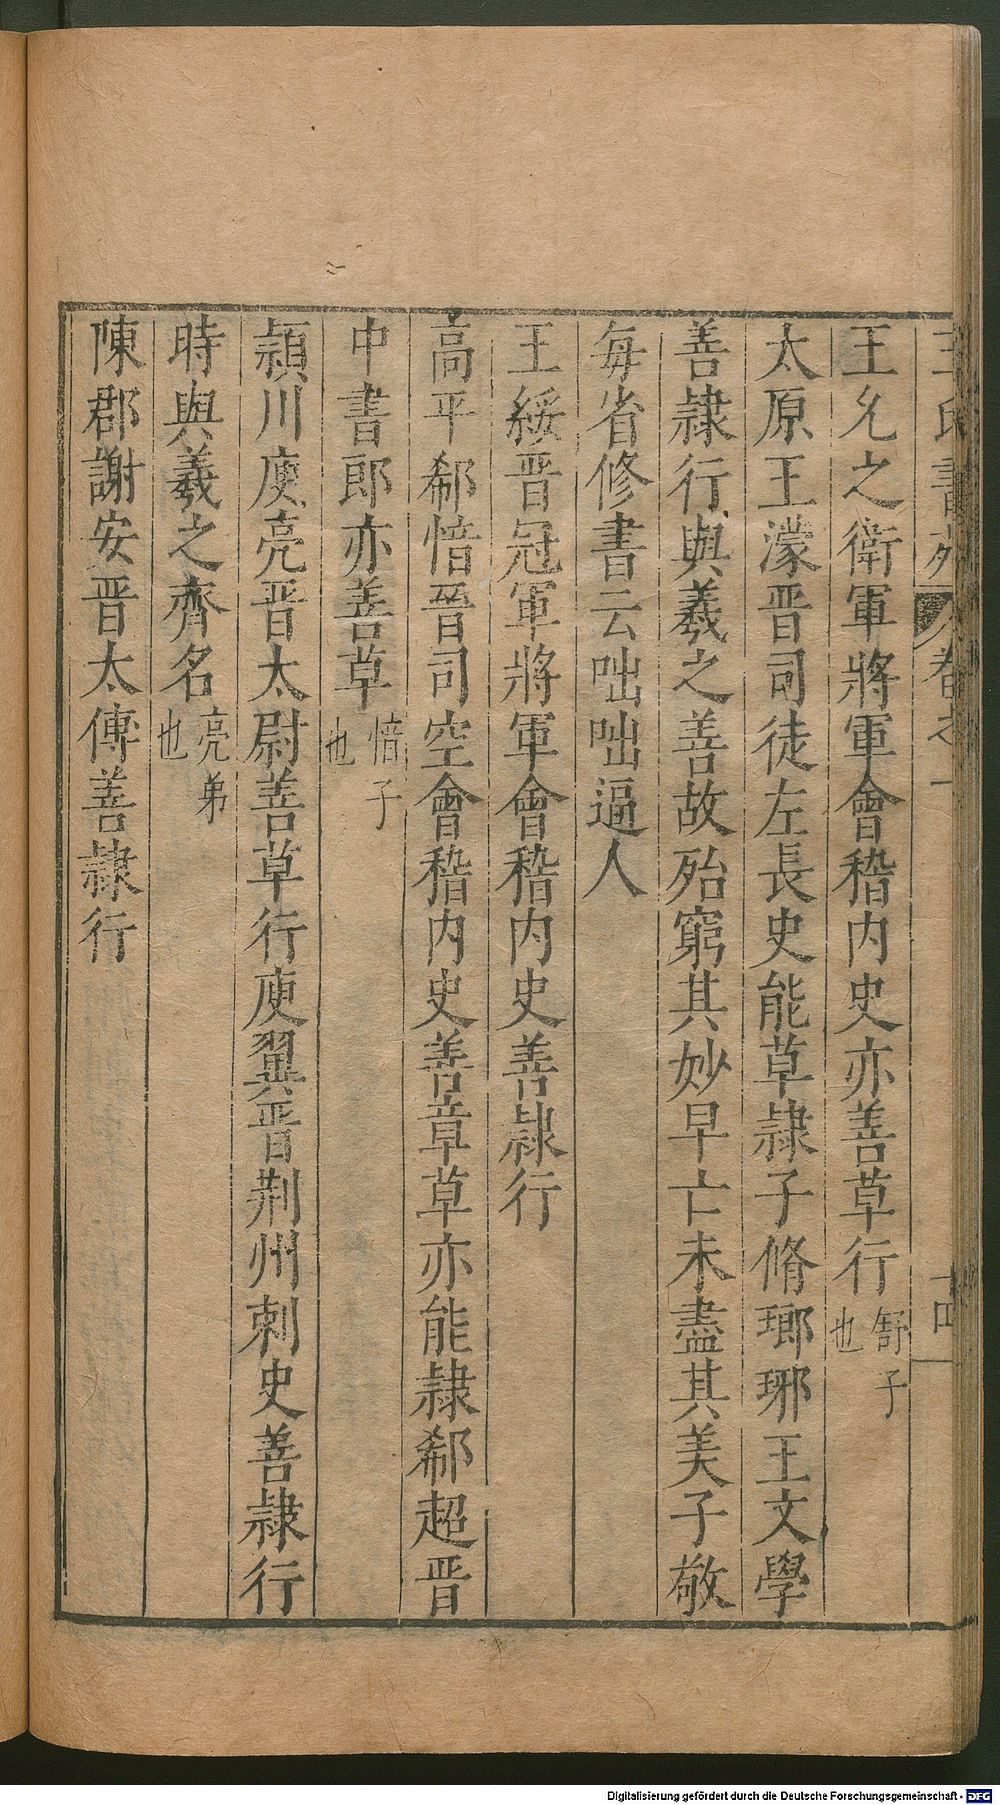 王氏書苑 卷之一 十四
王允之衛軍將軍會稽内史亦善草行舒子也
太原王濛晋司徒左長史能草隷子脩瑯琊王文學
善隷行與羲之善故殆窮其妙早亡未盡其美子敬
每省修書云咄咄逼人
王綏晋冠軍將軍會稽内史善隷行
高平郗愔晉司空會稽内史善章草亦能隷郗超晋
中書郎亦善草愔子也
頴川庾亮晋太尉善草行庾翼晋荆州刺史善隷行
時與羲之齊名亮弟也
陳郡謝安晋太傅善隷行
Digitalisierung gefördert durch die Deutsche Forschungsgemeinschaft - DFG